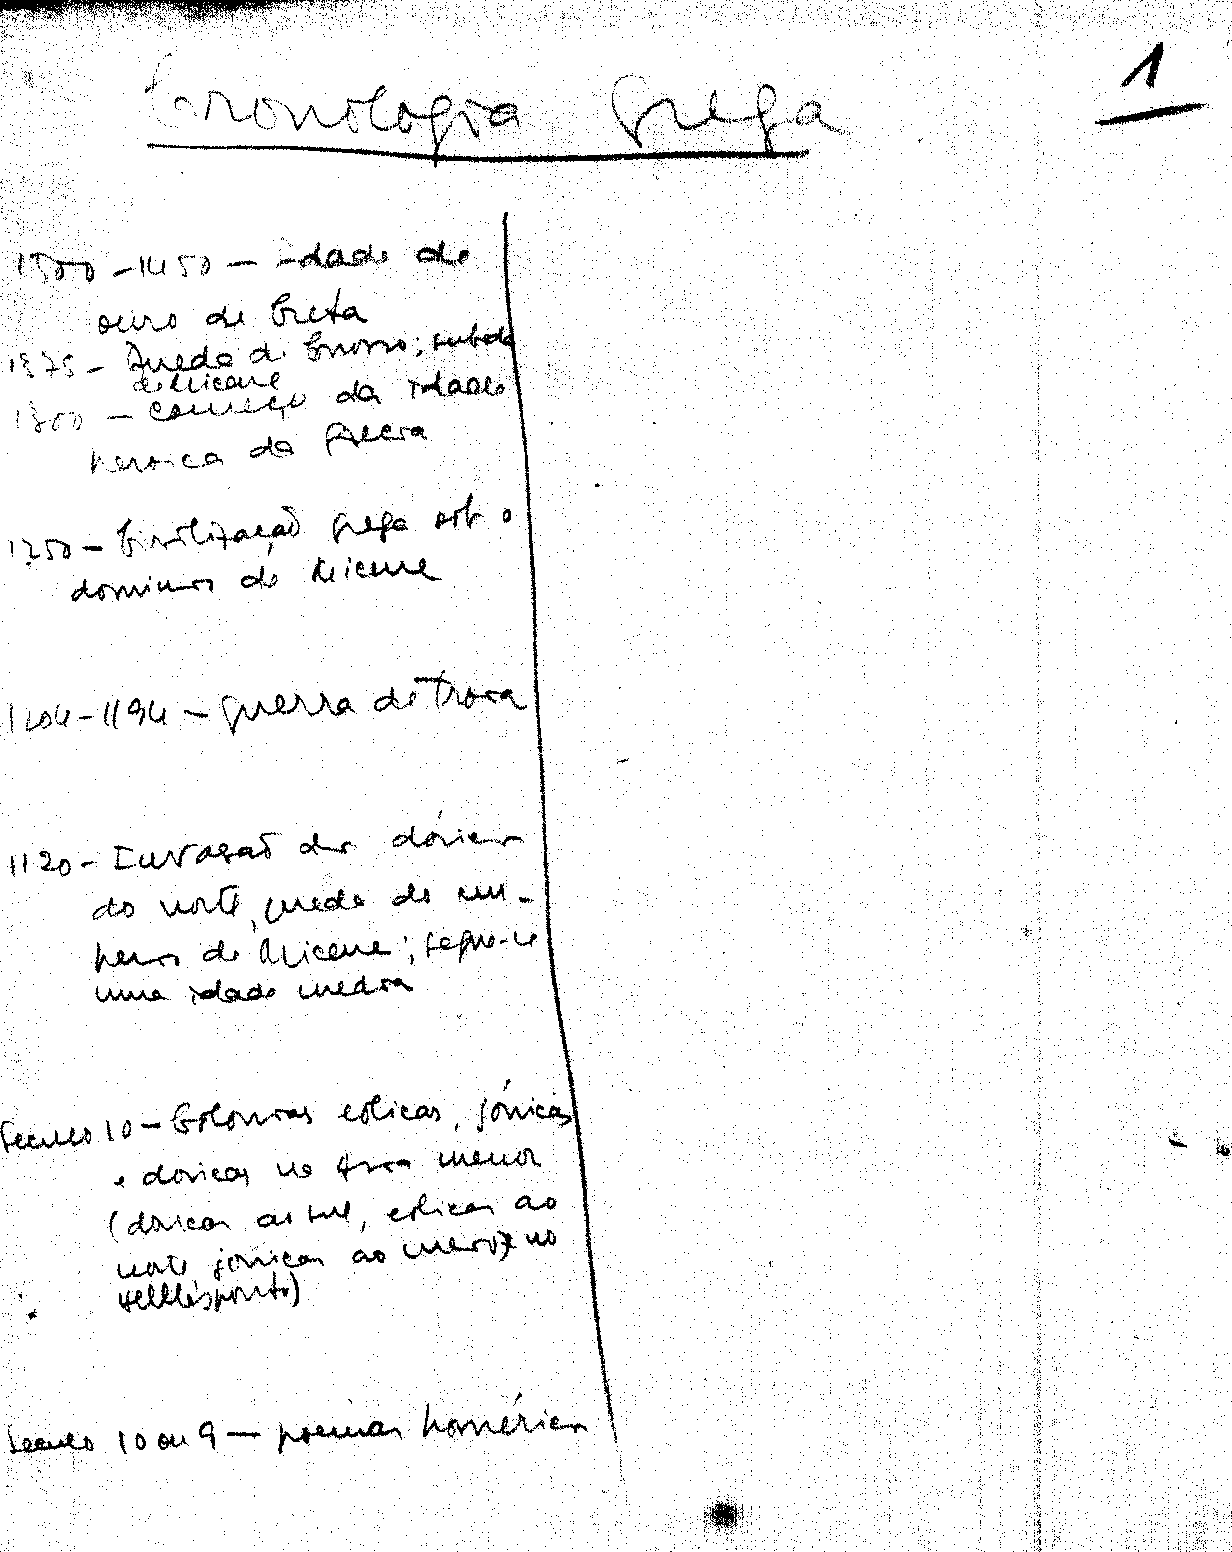 1
Cronologia Grega
1500 - 1450 — idade de
ouro de Creta
1375 - Queda de Cnosso; subida
de Micene
1300 — começo da idade
heroica da Grecia
1250 — Civilização grega sob o
dominio de Micene
1204 - 1194 — guerra de Troia
1120 - Invasão dos dórios
do norte, queda do im-
perio de Micene; segue-se
uma idade media
Seculo 10 — Colonias eolicas, jónicas
e doricas na Asia menor
(doricas ao sul, eolicas ao
norte jonicas ao meio) e no
Hellésponto)
Seculo 10 ou 9 — poemas homéricos